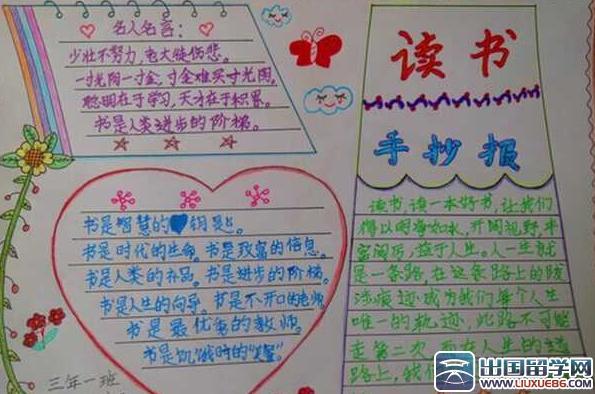 名人名言:
少壮不努力,老大徒伤悲。
一寸光阴一寸金,寸金难买寸光阴。
聪明在于学习,天才在于积累。
书是人类进步的阶梯。
读书
手抄报
书是智慧的钥匙。
书是时代的生命。书是致富的信息。
书是人类的补品。书是进步的阶梯。
书是人生的向导。书是不开口的老师
书是最优秀的教师。
书是饥饿时的
三年一班
读书读一本好书,让我们
得以明净如水,开阔视野,丰
富阅历,益于人生。人一生就
是一条路,在这条路上的跋
涉痕迹成为我们每个人生
唯一的轨迹,此路不可能
走第二次,而在人生的道
路上,我们
出国留学网
WWW.LIUXUE86.COM